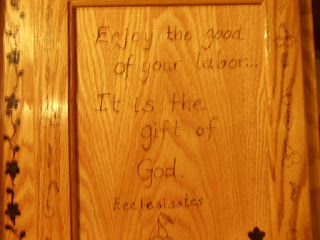 Enjoy the good
of your labor...
It is the
gift of
God.
Ecclesiastes